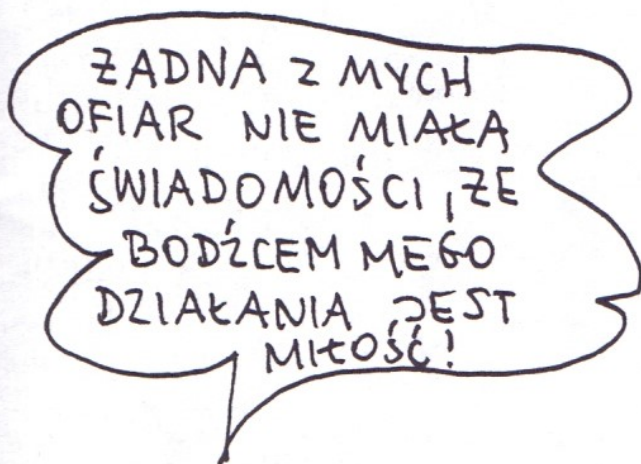 ŻADNA Z MYCH
OFIAR NIE MIAŁA
ŚWIADOMOŚCI, ŻE
BODŹCEM MEGO
DZIAŁANIA JEST
MIŁOŚĆ!